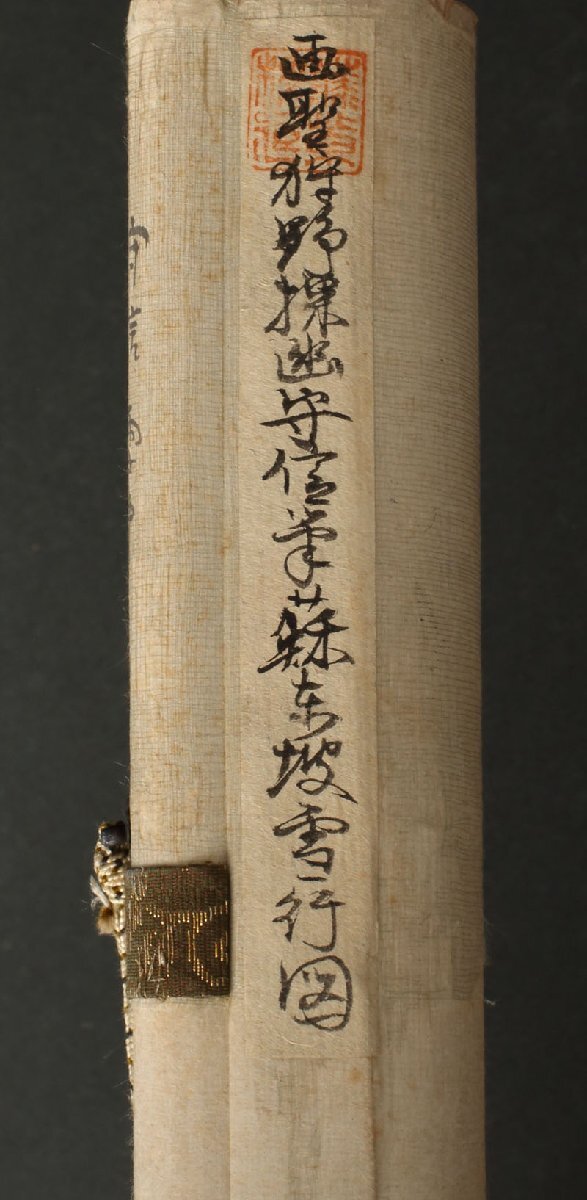 画聖狩野探幽守信筆蘇东坡雪行図
守信